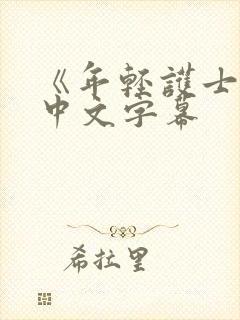 《年轻護士
中文字幕
希拉里